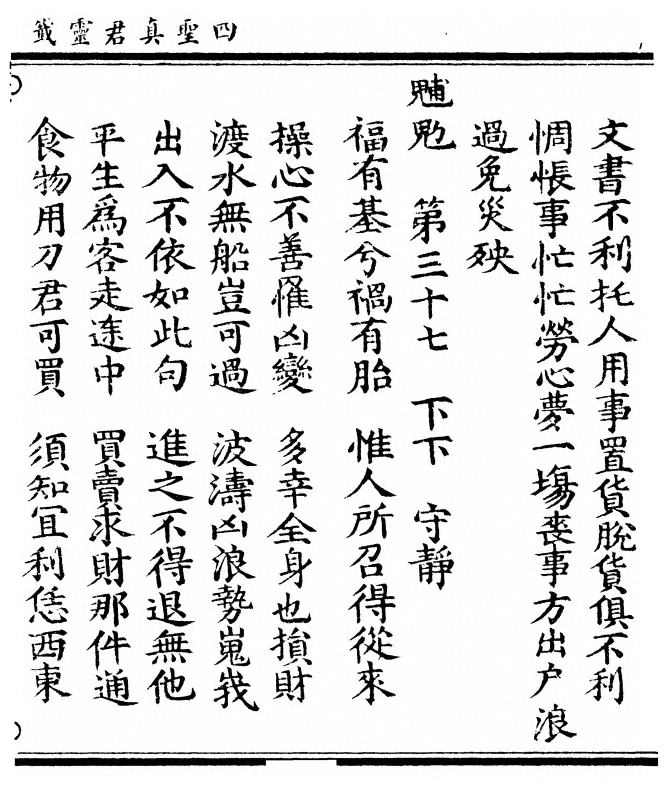 四聖真君靈籤
文書不利托人用事置貨脫貨俱不利
惆悵事忙忙勞心夢一塲喪事方出户浪
過免災殃
第三十七 下下 守靜
福有基兮禍有胎 惟人所召得從來
操心不善罹凶變 多幸全身也損財
渡水無船豈可過 波濤凶浪勢嵬峩
出入不依如此句 進之不得退無他
平生爲客走途中 買賣求財那件通
食物用刀君可買 須知冝利恁西東